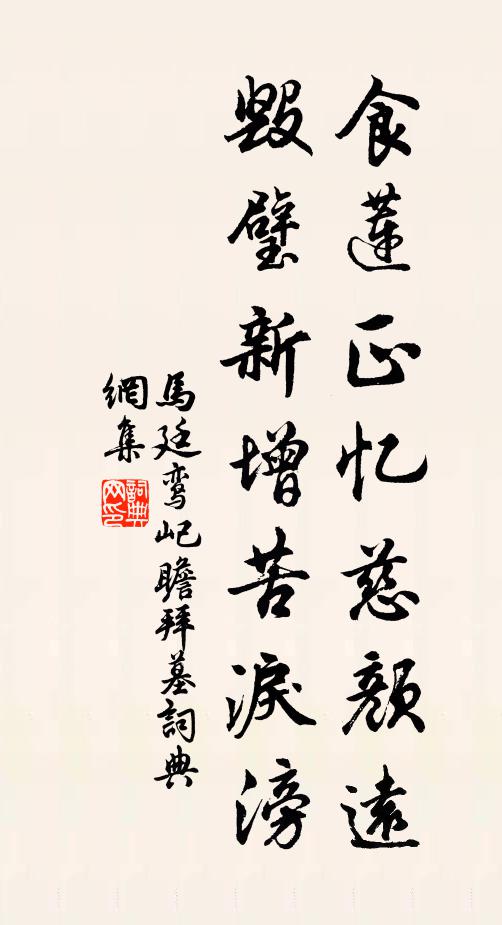 食蓮正忆慈顏遠
毀璧新增苦淚滂
馬廷鸾屺瞻拜墓詞典
網集
詞典
网印